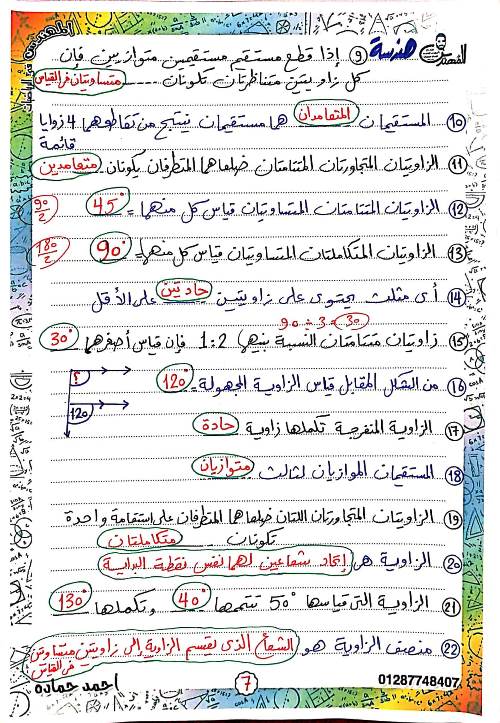 هندسة
⑨ إذا قطع مستقيم مستقيمين متوازيين فإن
كل زاويتين متناظرتان تكونان ..... متساويتان في القياس
⑩ المستقيمان المتعامدان هما مستقيمان ينتج من تقاطعهما 4 زوايا
قائمة
⑪ الزاويتان المتجاورتان المتتامتان ضلعاهما المتطرفان يكونان متعامدين
⑫ الزاويتان المتتامتان المتساويتان قياس كل منهما = 45° 90/2
⑬ الزاويتان المتكاملتان المتساويتان قياس كل منهما = 90° 180/2
⑭ أى مثلث يحتوى على زاويتين حادتين على الأقل
90 ÷ 3 = 30
⑮ زاويتان متتامتان النسبة بينهما 1:2 فإن قياس أصغرهما 30°
⑯ من الشكل المقابل قياس الزاوية المجهولة = 120°
؟
120
⑰ الزاوية المنفرجة تكملها زاوية حادة
⑱ المستقيمان الموازيان لثالث متوازيان
⑲ الزاويتان المتجاورتان اللتان ضلعاهما المتطرفان على استقامة واحدة
تكونان متكاملتان
⑳ الزاوية هى إتحاد شعاعين لهما نفس نقطة البداية
㉑ الزاوية التى قياسها 50° تتممها 40° وتكملها 130°
㉒ منصف الزاوية هو الشعاع الذى يقسم الزاوية الى زاويتين متساويتين
فى القياس
احمد حماده
7
01287748407